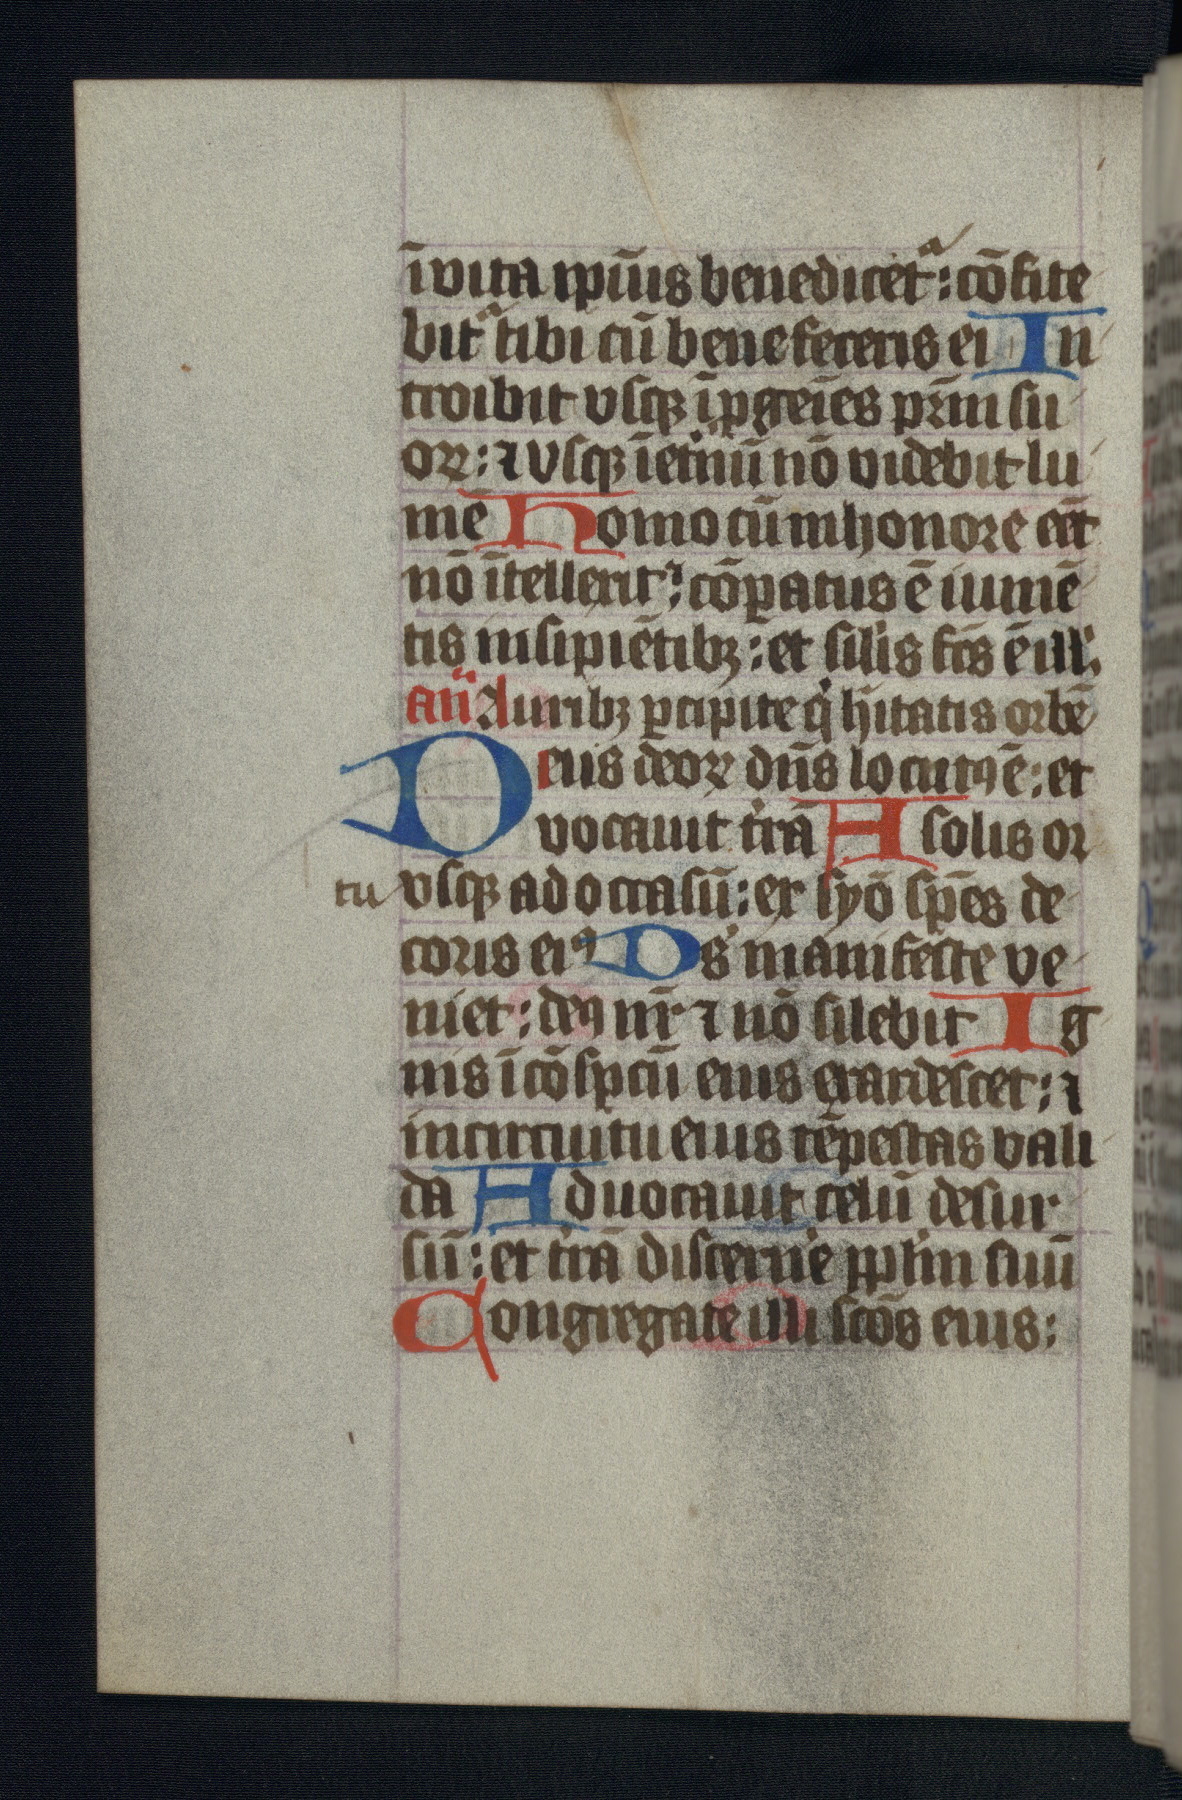 ī vita ipīus benedicet᷑ᵃ : cōfite
bit᷑ tibi cū benefeceris ei In
troibit vsqꝫ ī ꝓgeīes pr̄m su
oꝝ : ⁊ vsqꝫ īet̓nū nō videbit lu
mē Homo cum in honore eēt
nō ītellexit : cōꝑatus ē iumē
tis insipiētibꝫ : et sil̓is fcs̄ ē ill̓
an̄ Auribꝫ ꝑcipite q̓ hītatis orbē
Deus deoꝝ dn̄s locutꝯ ē : et
vocauit t̓rā A solis or
tu vsqꝫ ad occasū : ex syō sp̄es de
coris eiꝯ Ds̄ manifeste ve
niet : deꝯ nr̄ ⁊ nō silebit Ig
nis ī cōsp̄cū eius exardescet : ⁊
in circuitu eius tēpestas vali
da Aduocauit celū desur
sū : et t̓rā discerne ppl̓m suū
Congregate illi scōs eius :